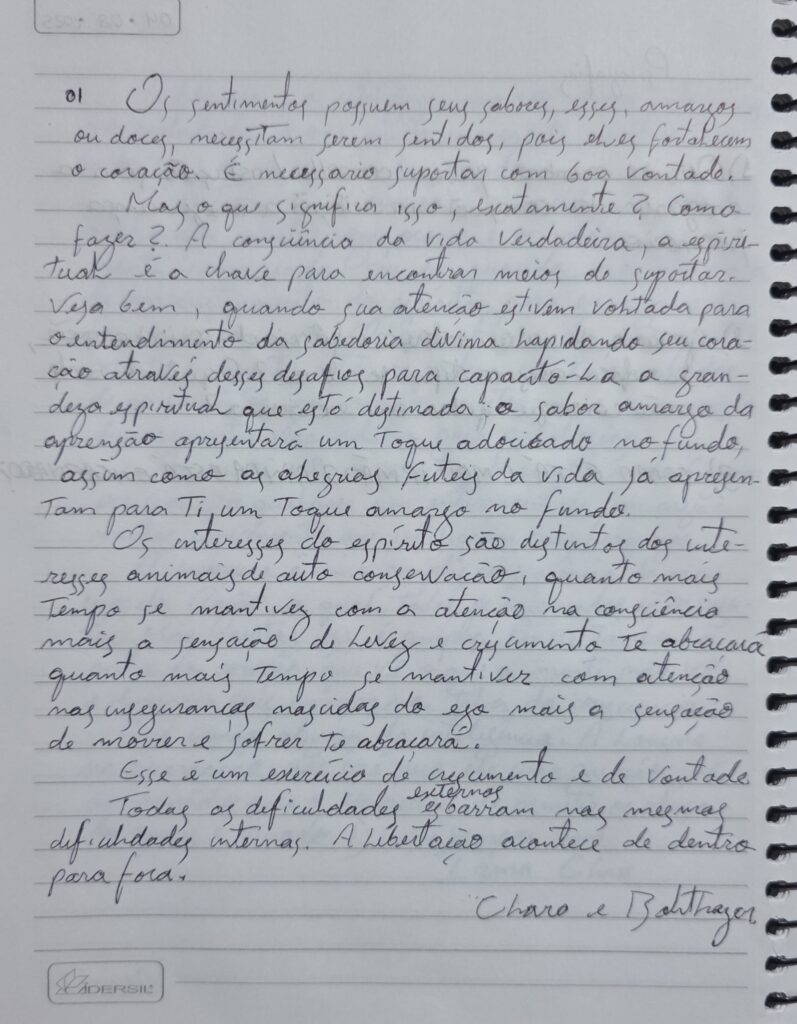 01 Os sentimentos possuem seus sabores, esses, amargos
ou doces, necessitam serem sentidos, pois eles fortalecem
o coração. É necessario suportar com boa vontade.
Mas o que significa isso, exatamente? Como
fazer? A consciência da vida verdadeira, a espiri-
tual é a chave para encontrar meios de suportar.
Veja bem, quando sua atenção estiver voltada para
o entendimento da sabedoria divina lapidando seu cora-
ção através desses desafios para capacitá-la a gran-
deza espiritual que está destinada, o sabor amargo da
aprensão apresentará um toque adocicado no fundo,
assim como as alegrias futeis da vida já apresen-
tam para ti, um toque amargo no fundo.
Os interesses do espírito são distintos dos inte-
resses animais de auto conservação, quanto mais
tempo se mantiver com a atenção na consciência
mais a sensação de levez e cresçimento te abraçará
quanto mais tempo se mantiver com atenção
nas inseguranças nascidas do ego mais a sensação
de morrer e sofrer te abraçará.
Esse é um exercício de cresçimento e de vontade
Todas as dificuldades externas esbarram nas mesmas
dificuldades internas. A libertação acontece de dentro
para fora.
Charo e Balthazer
ADERSIL